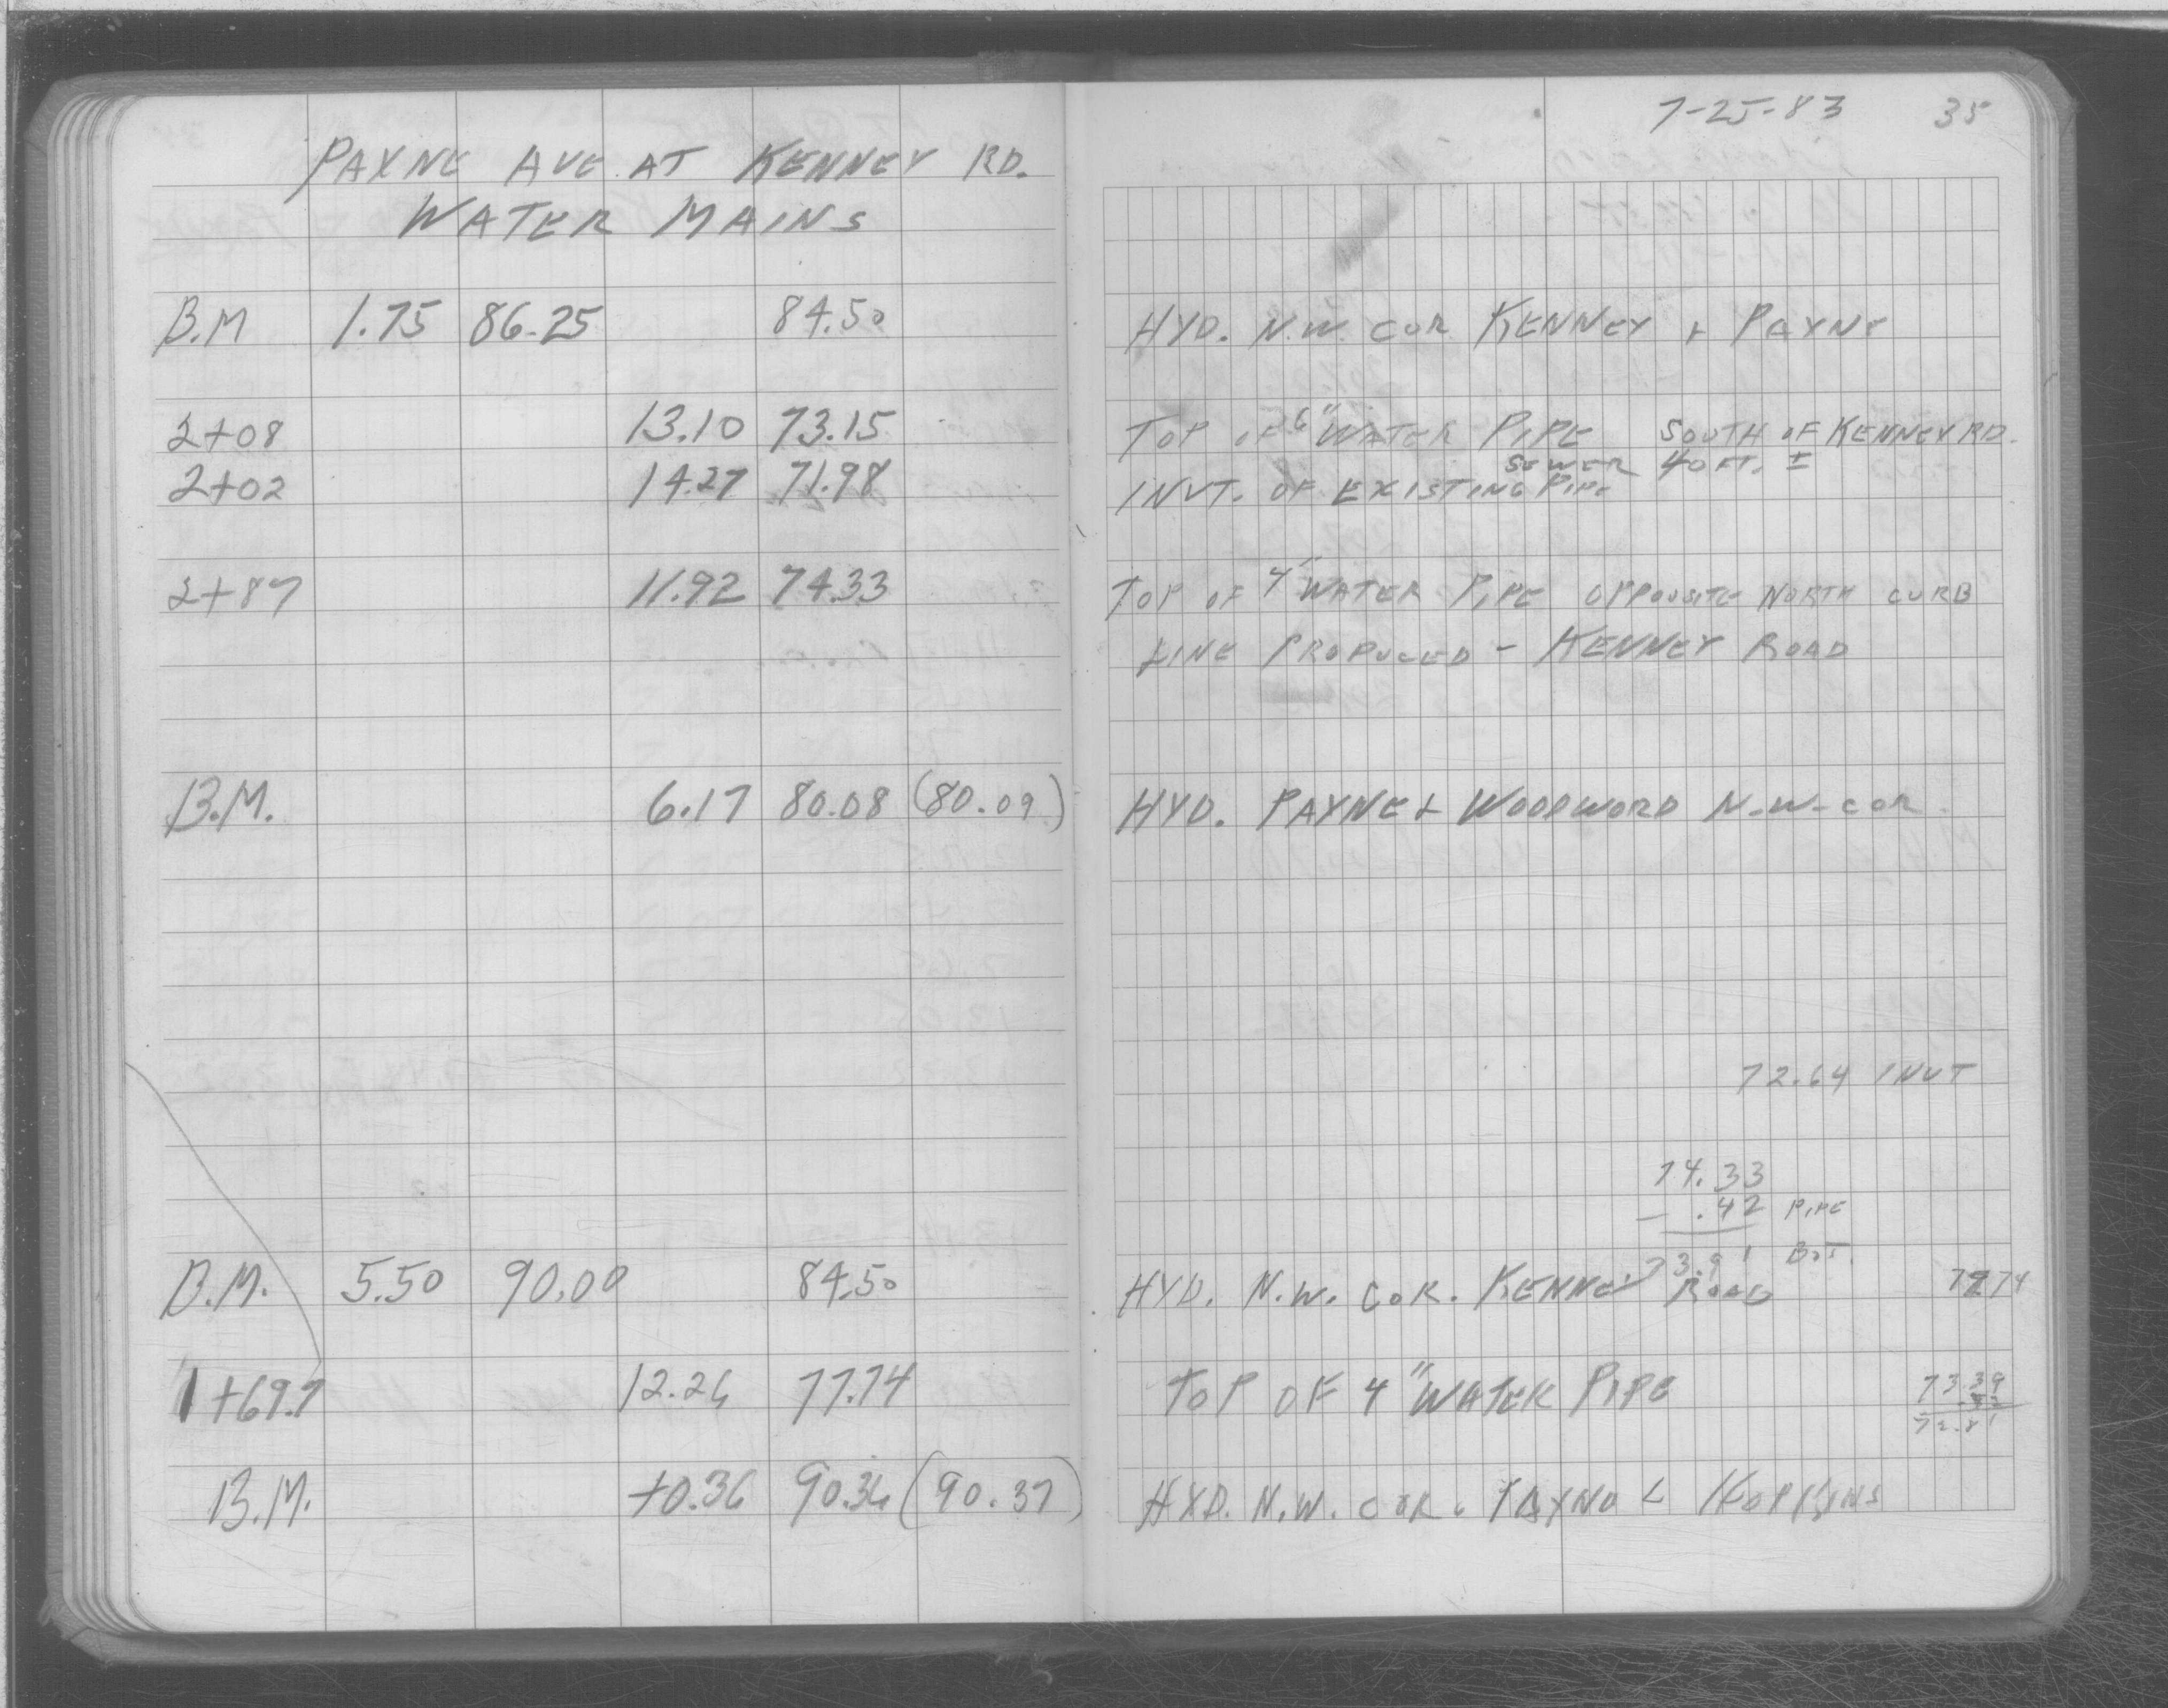 7-25-83 35
PAYNE AVE. AT KENNEY RD.
WATER MAINS
B.M 1.75 86.25 84.50 HYD. N.W. COR KENNEY & PAYNE
2+08 13.10 73.15 TOP OF 6" WATER PIPE SOUTH OF KENNEY RD.
2+02 14.27 71.98 INVT. OF EXISTING SEWER PIPE 40 FT. ±
2+87 11.92 74.33 TOP OF 4" WATER PIPE OPPOUSITE NORTH CURB
LINE PRODUCED - KENNEY ROAD
B.M. 6.17 80.08 (80.09) HYD. PAYNE & WOODWORD N.W. COR.
72.64 INVT
74.33
- .42 PIPE
73.91 BOT.
B.M. 5.50 90.00 84.50 HYD. N.W. COR. KENNEY ROAD
1+69.7 12.26 77.74 TOP OF 4" WATER PIPE
73.39
72.81
B.M. +0.36 90.36 (90.37) HYD. N.W. COR. PAYNE & HOPKINS